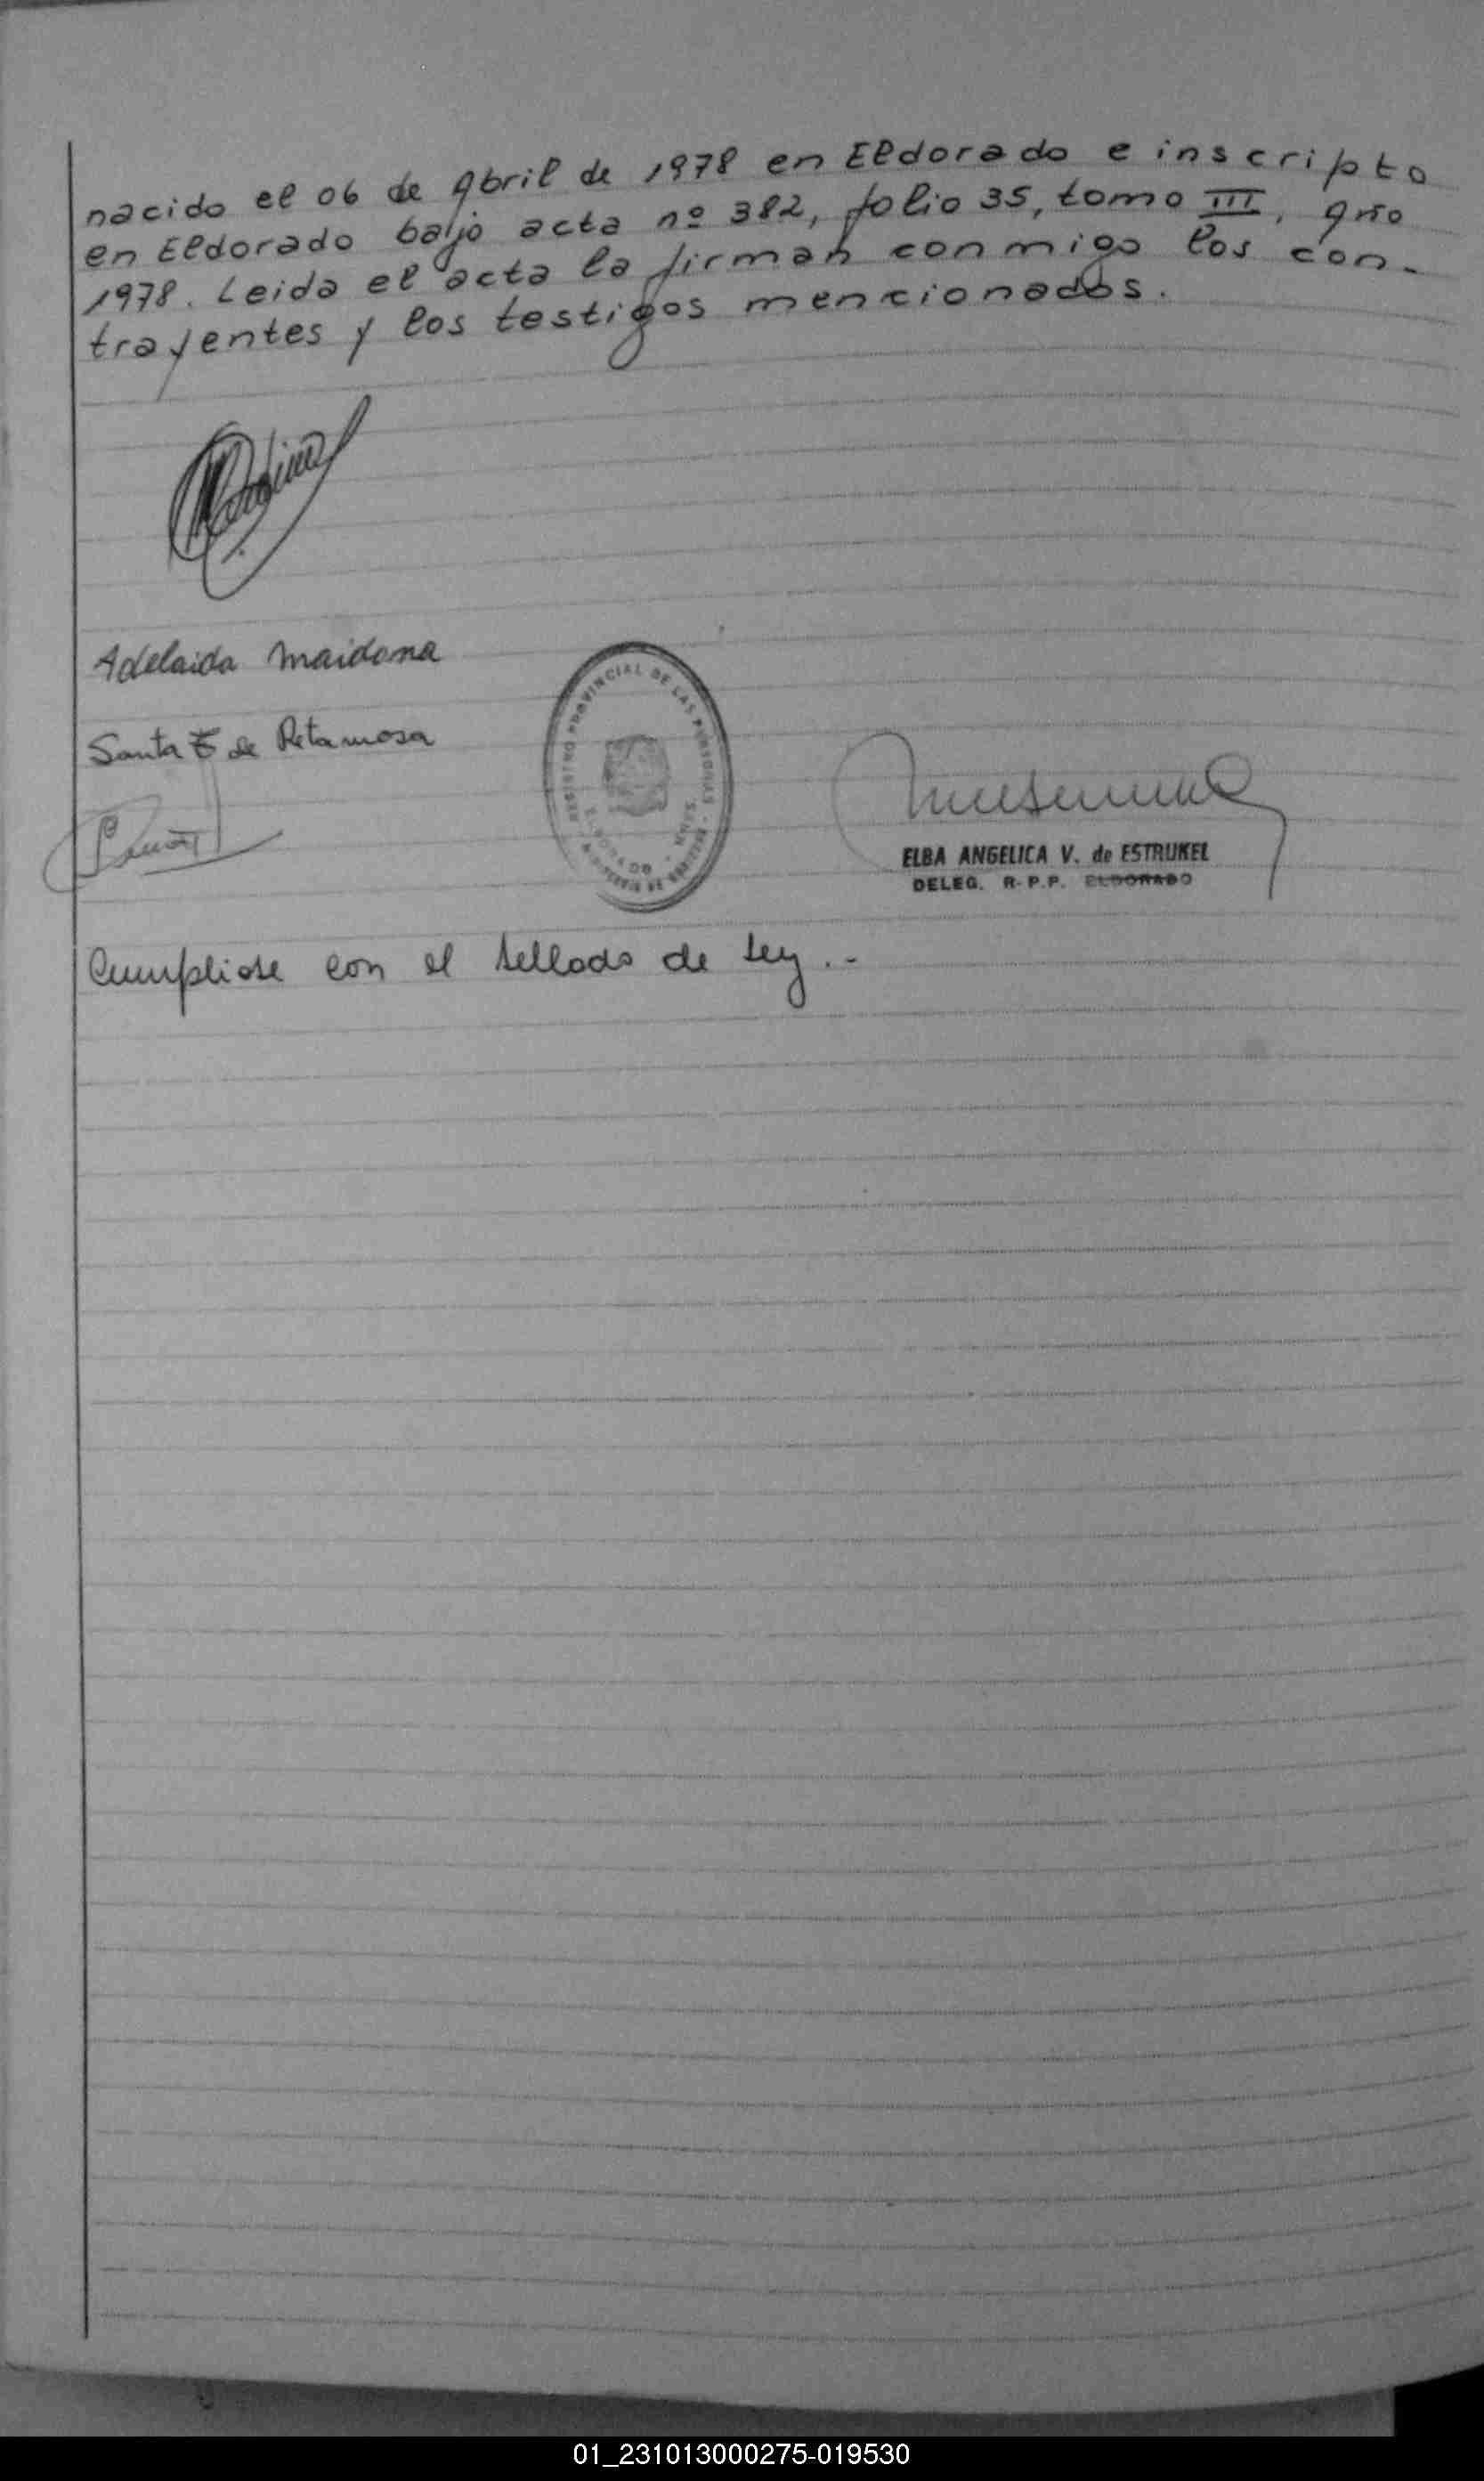 nacido el 06 de Abril de 1978 en Eldorado e inscripto
en Eldorado bajo acta nº 382, folio 35, tomo III, año
1978. Leida el acta la firman conmigo los con-
trayentes y los testigos mencionados.
Adelaida Maidana
Santa E de Retamosa
REGISTRO PROVINCIAL DE LAS PERSONAS
ELDORADO - MNES.
ELBA ANGELICA V. de ESTRUKEL
DELEG. R.P.P. ELDORADO
Cumpliose con el sellado de Ley.-
01_231013000275-019530